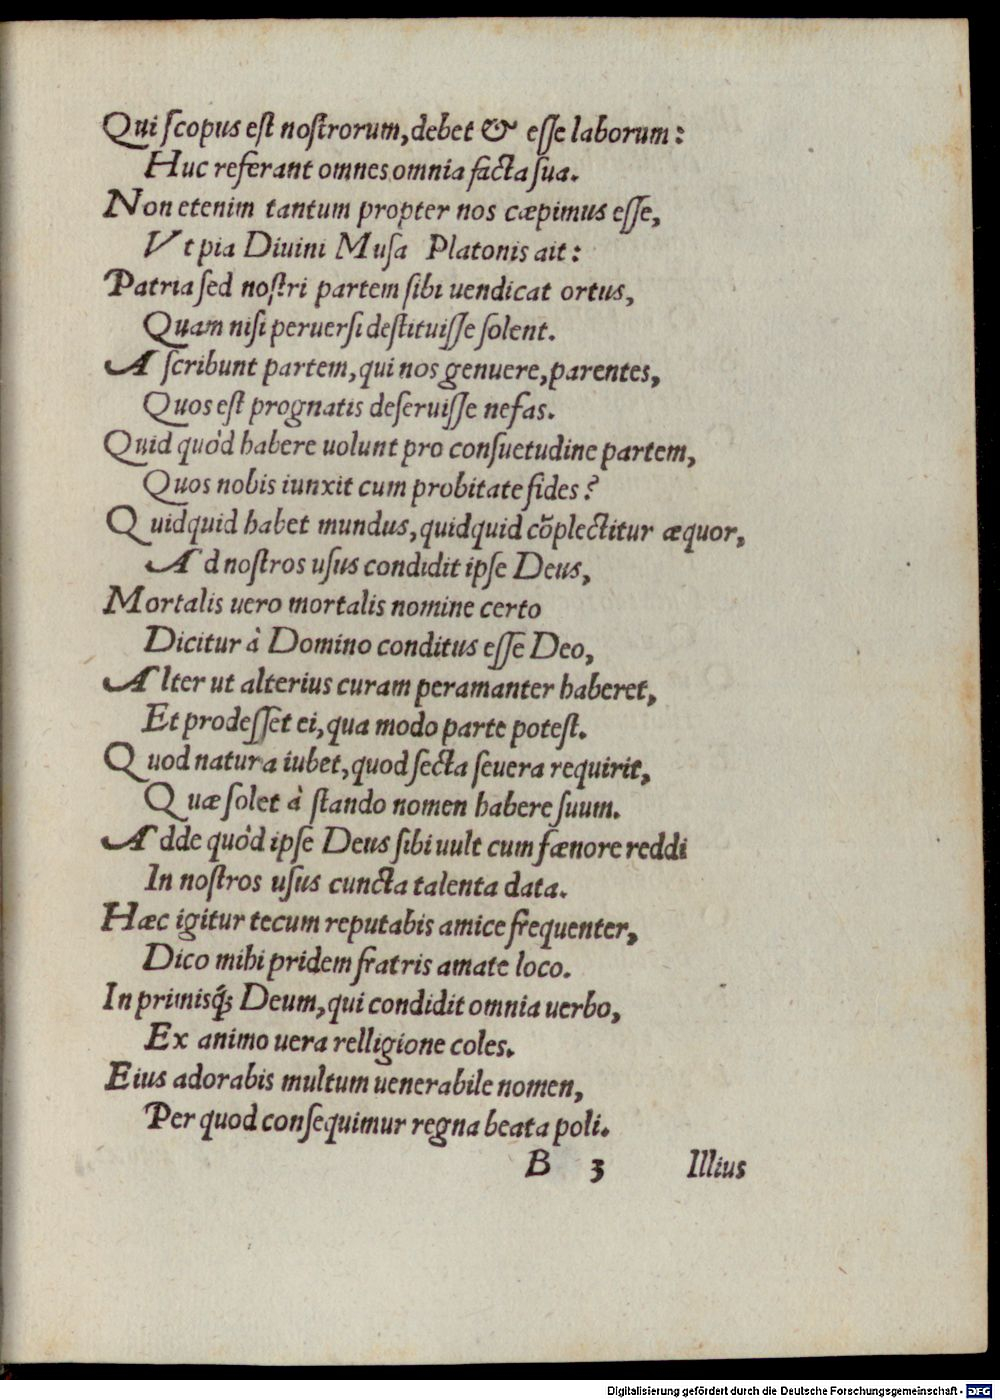 Qui ſcopus eſt noſtrorum, debet & eſſe laborum:
Huc referant omnes omnia facta ſua.
Non etenim tantum propter nos cæpimus eſſe,
Vt pia Diuini Muſa Platonis ait:
Patria ſed noſtri partem ſibi uendicat ortus,
Quam niſi peruerſi deſtituiſſe ſolent.
Aſcribunt partem, qui nos genuere, parentes,
Quos eſt prognatis deſeruiſſe nefas.
Quid quòd habere uolunt pro conſuetudine partem,
Quos nobis iunxit cum probitate fides?
Quidquid habet mundus, quidquid cõplectitur æquor,
Ad noſtros uſus condidit ipſe Deus,
Mortalis uero mortalis nomine certo
Dicitur à Domino conditus eſſe Deo,
Alter ut alterius curam peramanter haberet,
Et prodeſſet ei, qua modo parte poteſt.
Quod natura iubet, quod ſecta ſeuera requirit,
Quæ ſolet à ſtando nomen habere ſuum.
Adde quòd ipſe Deus ſibi uult cum fænore reddi
In noſtros uſus cuncta talenta data.
Hæc igitur tecum reputabis amice frequenter,
Dico mihi pridem fratris amate loco.
In primisq́; Deum, qui condidit omnia uerbo,
Ex animo uera relligione coles.
Eius adorabis multum uenerabile nomen,
Per quod conſequimur regna beata poli.
B 3 Illius
Digitalisierung gefördert durch die Deutsche Forschungsgemeinschaft - DFG